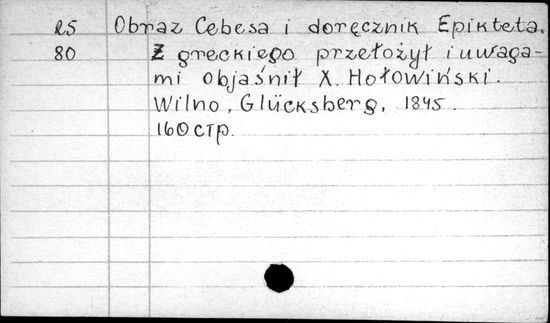 25 Obraz Cebesa i doręcznik Epikteta.
80 Z greckiego przełożył i uwaga-
mi objaśnił X. Hołowiński.
Wilno, Glücksberg, 1845.
160 стр.